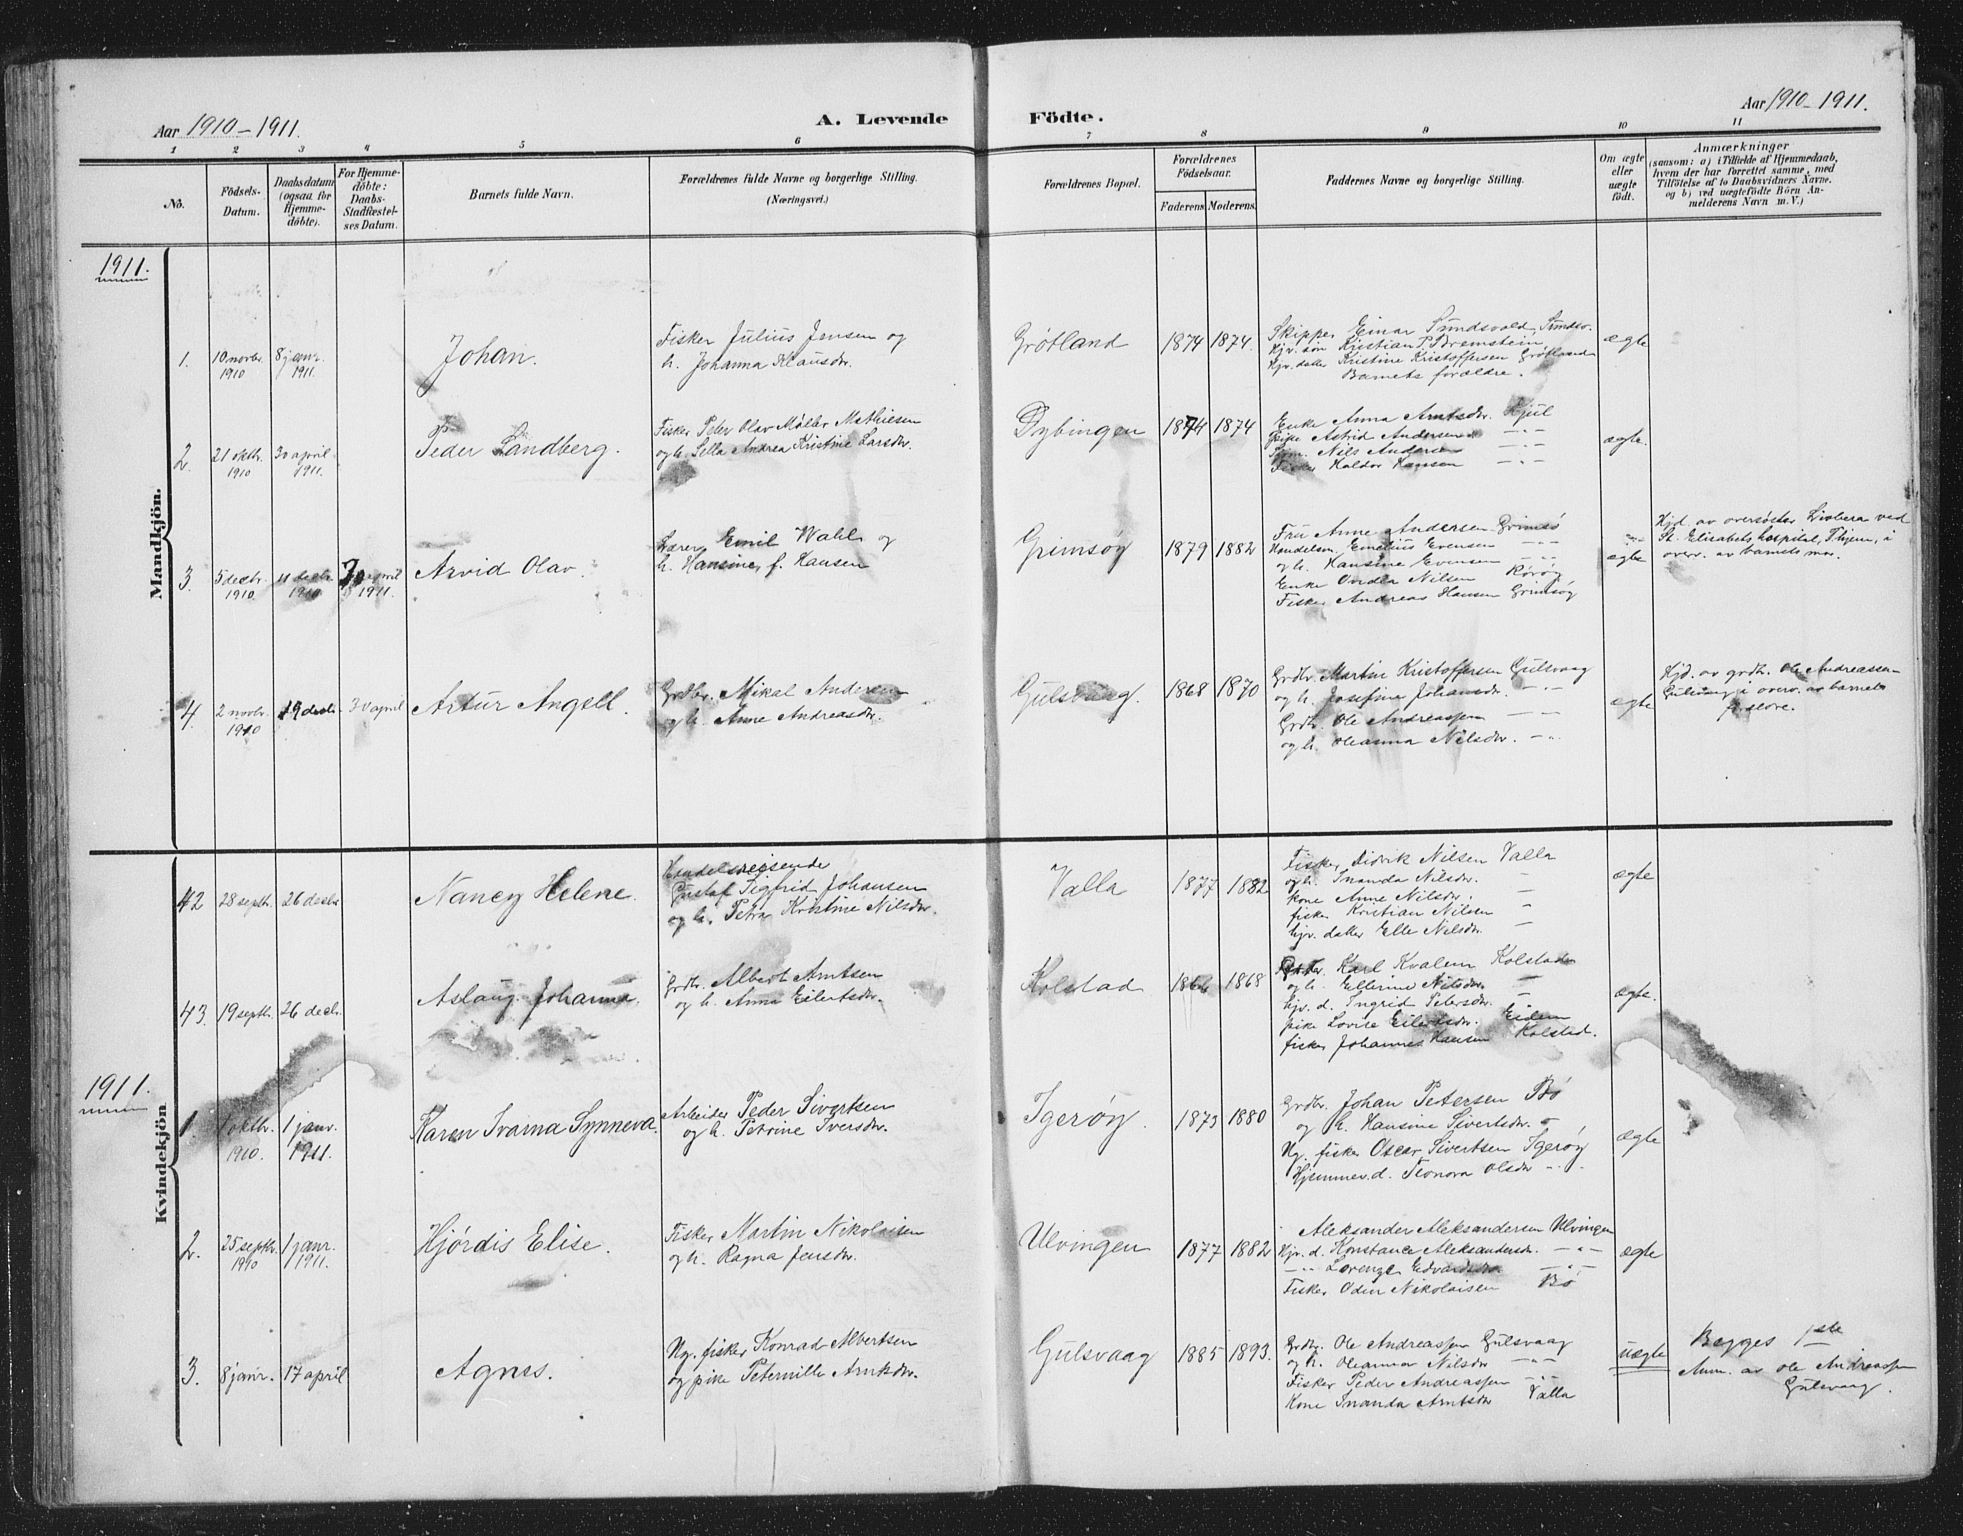 Aar 1910-1911.
A. Levende Födte.
Aar 1910-1911.
1 2 3 4 5 6 7 8 9 10 11
No.
Födsels-Datum.
Daabsdatum (ogsaa for Hjemmedöbte).
For Hjemmedöbte: Daabs-Stadfæstelses Datum.
Barnets fulde Navn.
Forældrenes fulde Navne og borgerlige Stilling.
(Næringsvei.)
Forældrenes Bopæl.
Forældrenes Födselsaar.
Faderens. Moderens.
Faddernes Navne og borgerlige Stilling.
Om ægte eller uægte födt.
Anmærkninger
(saasom: a) i Tilfælde af Hjemmedaab,
hvem der har forrettet samme, med
Tilföielse af to Daabsvidners Navne.
og b) ved uægtefödte Börn An-
melderens Navn m.V.)
1911.
Mandkjön.
1. 10 novbr. 1910 8 janr. 1911.
Johan.
Fisker Julius Jensen og
h. Johanna Klausdr.
Grøtland 1874 1874.
Skipper Einar Sundsvold, Sundsv.
Hjv. søn Kristian P. Bremstein,
Hjv. datter Kristine Kristoffersen Grøtland
Barnets forældre.
ægte
2. 21 oktbr. 1910 30 april 1911.
Peder Landberg.
Fisker Peter Olav Møller Mathiesen
og h. Sella Andrea Kristine Larsdr.
Dybingen 1874 1874
Enke Anna Arntsdr. Kjul
pike Astrid Andersen
Nils Andersen
Fisker Haldor Hansen
ægte
3. 5 decbr. 1910 11 decbr. 1910 30 april 1911.
Arvid Olav.
Lærer Emil Wahl og
h. Hansine, f. Hansen
Grimsøy 1879 1882
Fru Anne Andersen Grimsø
Handelsm. Emelius Evensen
og h. Hansine Evensen
Enke Ovidia Nilsen Rørøy
Fisker Andreas Hansen Grimsøy
ægte
Hjd. av oversøster Liobera ved
St. Elisabets hospital, Thjem, i
overv. av barnets mor.
4. 2 novbr. 1910 19 decbr. 30 april
Artur Angell.
Grdbr. Mikal Andersen
og h. Anne Andreasdr.
Gulsvaag. 1868 1870
Grdbr. Martin Kristoffersen Gulsvaag
og h. Josefine Johansdr.
Grdbr. Ole Andreassen
og h. Oleanna Nilsdr.
ægte
Hjd. av grdbr. Ole Andreassen
Gulsvaag i overv. av barnets
forældre.
Kvindekjön
42 28 septbr. 26 decbr
Nancy Helene.
Handelsreisende
Gustaf Sigfrid Johansen
og h. Petra Kristine Nilsdr.
Valla 1877 1882
Fisker Didrik Nilsen Valla
og h. Inanda Nilsdr.
kone Anne Nilsdr.
fisker Kristian Nilsen
hjv. datter Elle Nilsdr.
ægte
43. 19 septbr. 26 decbr.
Aslaug Johanna.
Grdbr. Albert Arntsen
og h. Anna Eilertsdr.
Kolstad 1866 1868
Grdbr. Karl Kvalem Kolstad
og h. Ellerine Nilsdr.
hjv. d. Ingrid Petersdr.
pike Lovise Eilertsdr. Eidem
fisker Johannes Hansen Kolstad.
ægte.
1911.
1 1 oktbr. 1910. 1 janr. 1911.
Karen Ivarna Synneva.
Arbeider Peder Sivertsen
og h. Petrine Iversdr.
Igerøy. 1873 1880
Grdbr. Johan Petersen Bø
og h. Hansine Sivertsdr.
Ug. fisker Oscar Sivertsen Igerøy
Hjemmev. d. Leonora Olsdr
ægte
2. 25 septbr. 1910 1 janr. 1911.
Hjørdis Elise.
Fisker Martin Nikolaisen
og h. Ragna Jensdr.
Ulvingen 1877 1882
Aleksander Aleksandersen Ulvingen
Hjv. d. Konstance Aleksandersdr.
Lorense Edvardsdr.
Fisker Odin Nikolaisen Bø
ægte
3. 8 janr. 17 april
Agnes.
Ug. fisker Konrad Albertsen
og pike Peternille Arntsdr.
Gulsvaag 1885 1893.
Grdbr. Ole Andreassen Gulsvaag
og h. Oleanna Nilsdr
Fisker Peder Andreassen
Kone Inanda Arntsdr Valla
uægte
Begges 1ste
Anm. av Ole Andreassen
Gulsvaag.